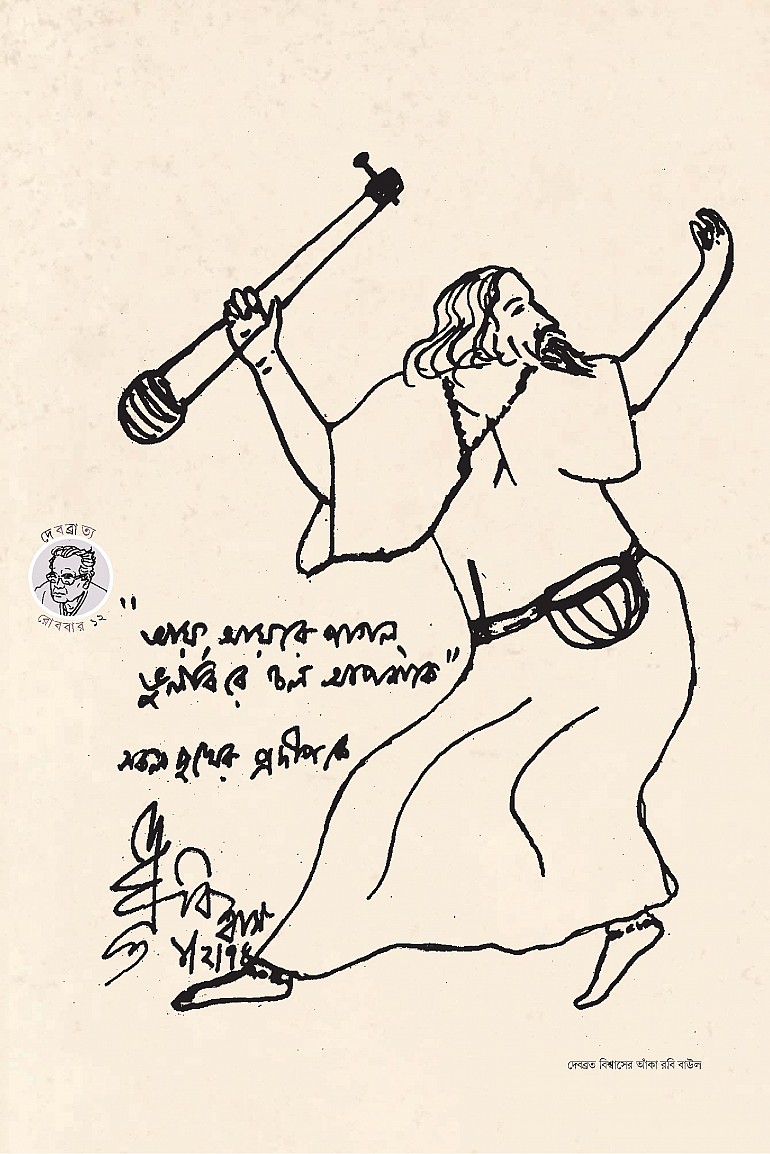 দেবব্রাত্য
রোববার ১২
"আয়, আয়রে পাগল,
ভুলবি রে চল আপনাকে"
সকল দুখের প্রদীপকে
দেবব্রত বিশ্বাস
দেবব্রত বিশ্বাসের আঁকা রবি বাউল